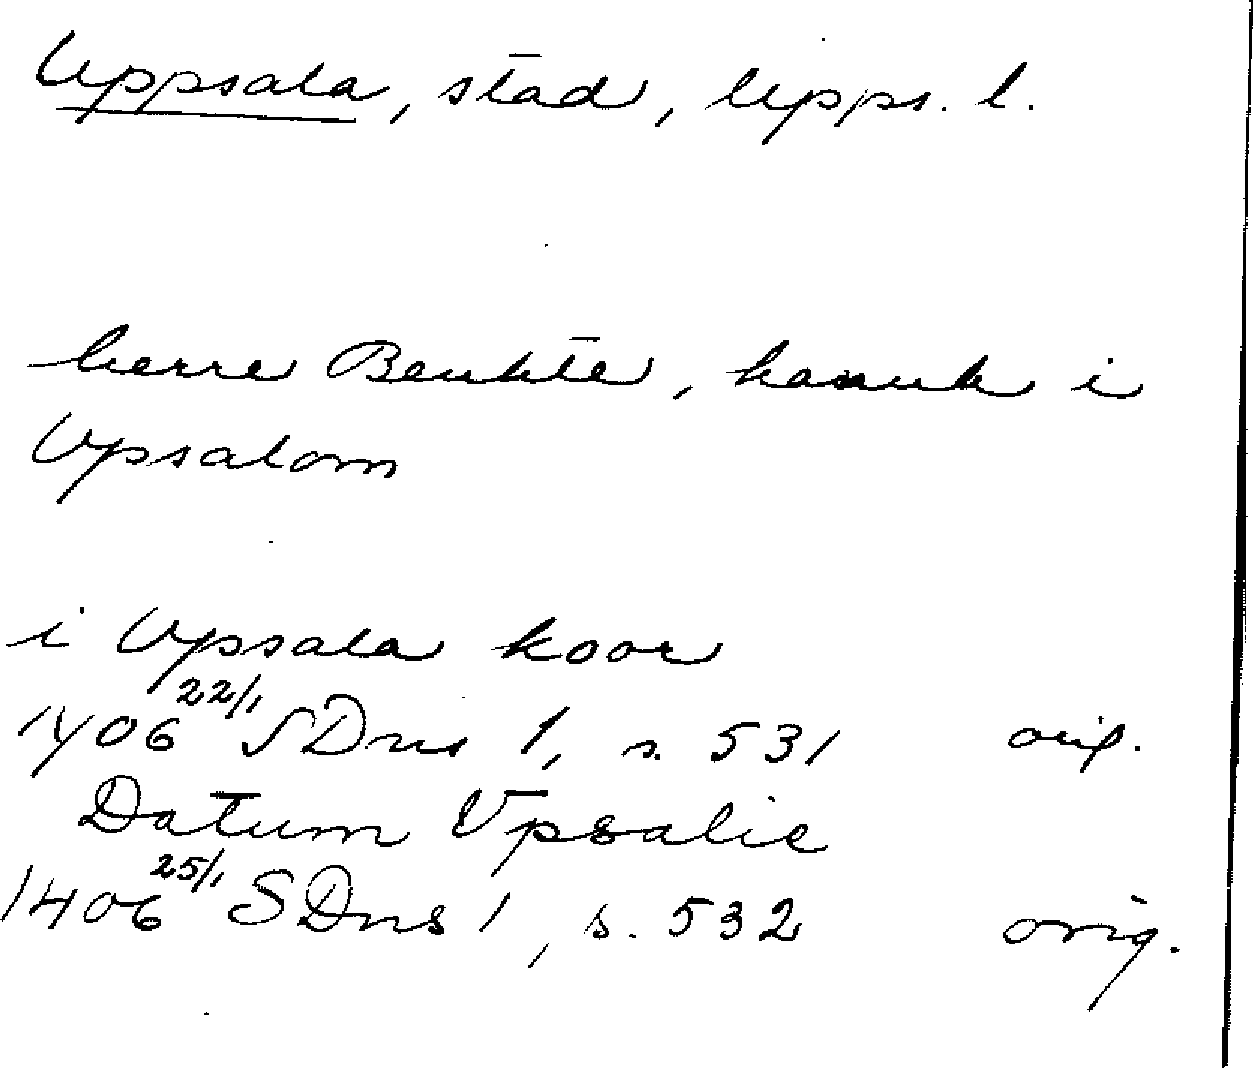 Uppsala, stad, Upps. l.
herre Benkte, kanuk i
Vpsalom
i Vpsala koor
1406 22/1 SDns 1, s. 531 orig.
Datum Vpsalie
1406 25/1 SDns 1, s. 532 orig.